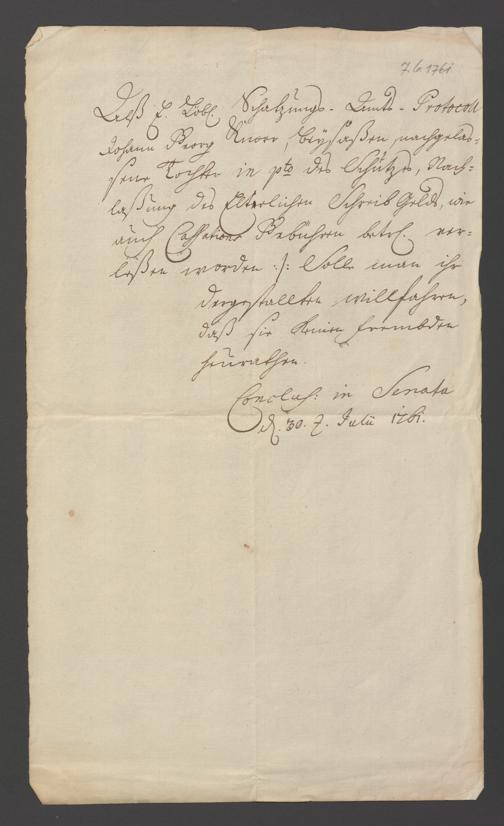 7. 6. 1761
Alß E. Löbl. Schatzungs-Ambts-Protocoll
Johann Georg Knorr, beysaßen, nachgelas-
sene Tochter in pto des Schutzes, Nach-
laßung des Elterlichen Schreib Gelds, wie
auch Cassations Gebühren betr. ver-
leßen worden :/: Solle man ihr
dergestallten willfahren,
daß sie keinen frembden
heurathen.
Conclus: in Senatu
d. 30. Julii 1761.